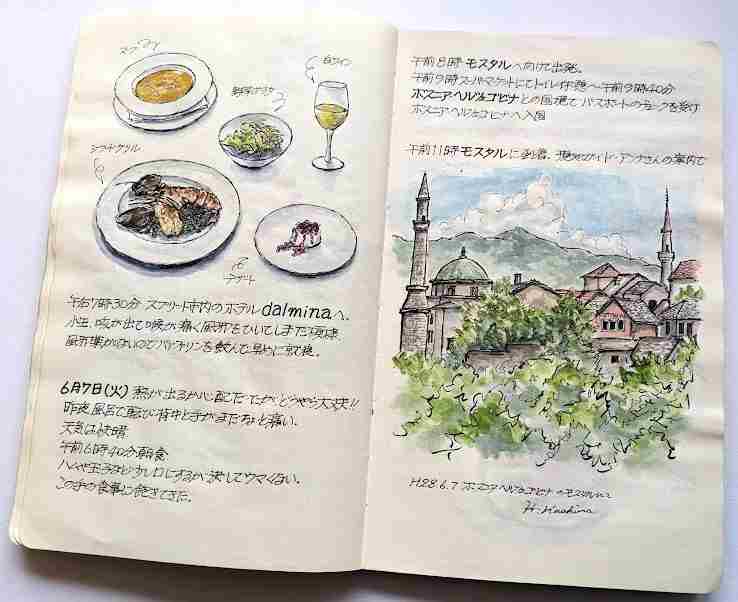 スープ
白ワイン
野菜サラダ
シーフードグリル
デザート
午后7時30分 スプリート市内のホテル dalminaへ。
小生、咳が出て喉が痛く風邪をひいてしまった模様
風邪薬がないのでバファリンを飲んで早めに就寝。
6月7日(火) 熱が出るか心配だったが、どうやら大丈夫!!
昨夜風呂で転び背中と手がまだちょと痛い。
天気は快晴
午前6時40分朝食
ハムや玉子などを少し口にするが決してウマくない。
この手の食事に飽きてきた。
午前8時 モスタルへ向けて出発。
午前9時スーパーマーケットにてトイレ休憩〜午前9時40分
ボスニアヘルツェゴビナとの国境で パスポートのチェックを受け
ボスニアヘルツェゴビナへ入国
午前11時モスタルに到着、現地ガイド・アンナさんの案内で
H28.6.7 ボスニアヘルツェゴビナのモスタルにて